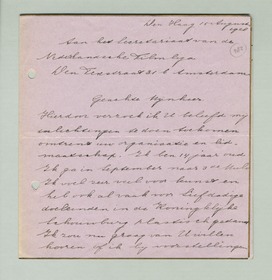 Den Haag 15 Augustus
Aan het Secretariaat van de
Nederlandsche Film liga
Den Texstraat 31 b Amsterdam
Geachte Mijnheer
Hierdoor verzoek ik U beleefd my
inlichtingen te doen toekomen
omtrent uw organisatie en lid-
maatschap. Ik ben 14 jaar oud
Ik ga in September naar 3de
Ik voel zeer veel voor kunst en
heb ook al vaak voor liefdadige
doeleinden in de Koninglijke
Schouwburg plastisch gedanst
Ik zou nu graag van U willen
hooren of ik by voorstellingen